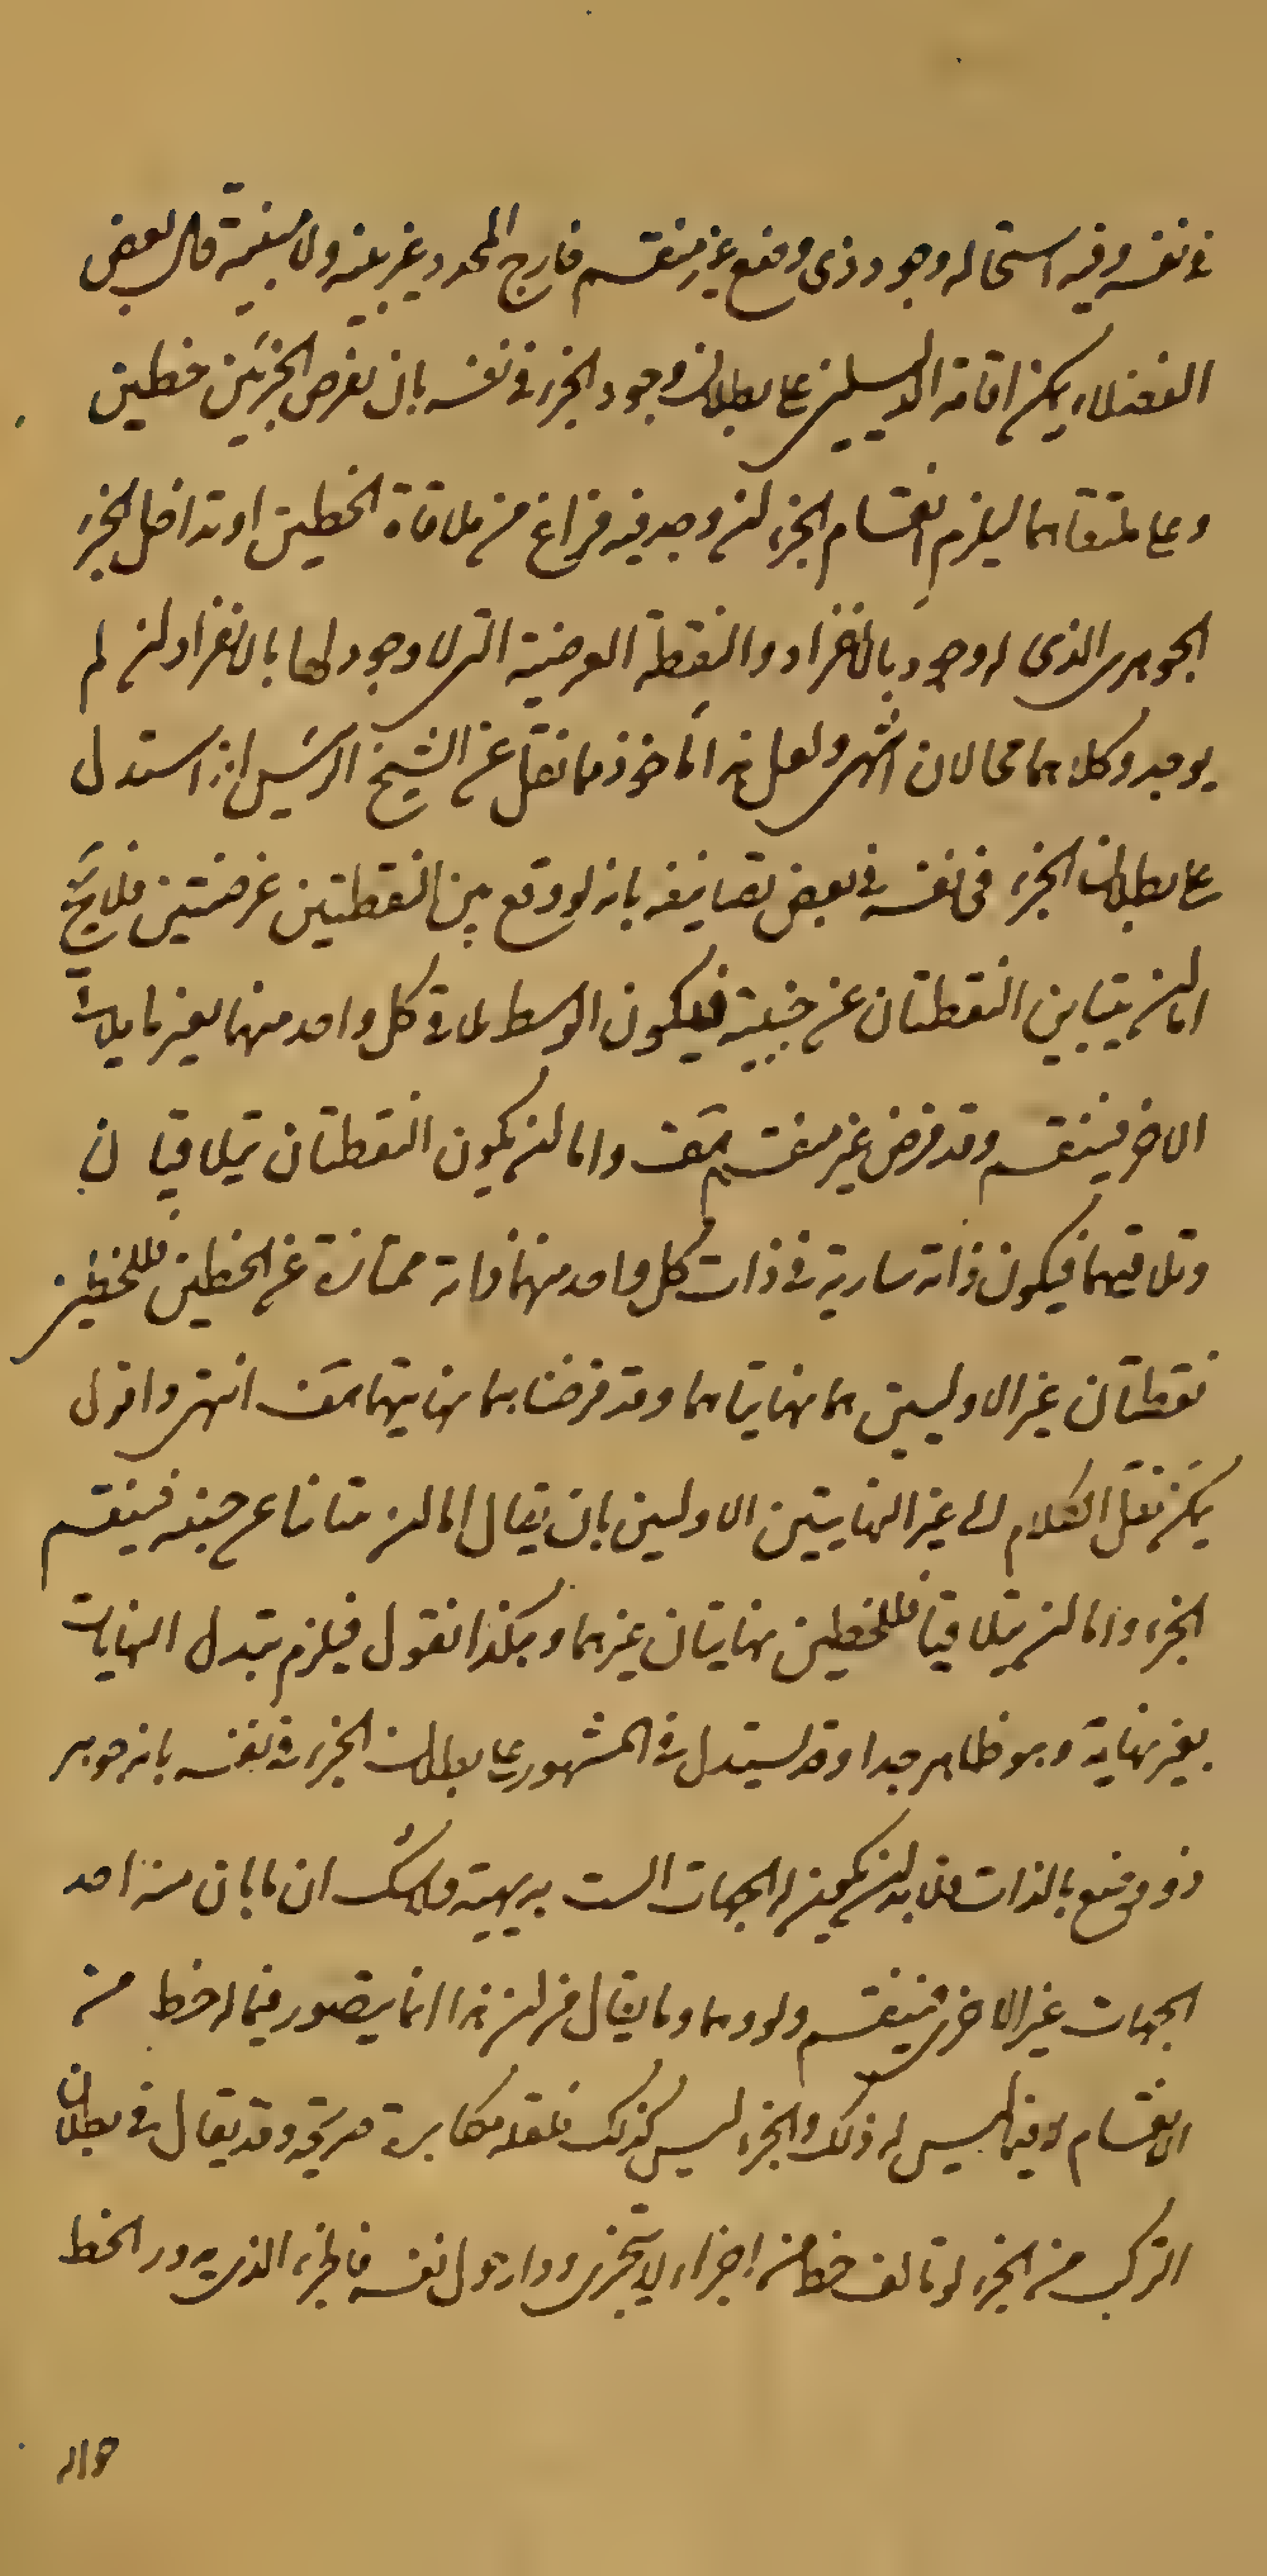 في نفسه وفيه استحاله وجود ذي وضع غير منقسم خارج المحدد غير بينه ولا مبينة قال بعض
الفضلاء يمكن اقامة الدليلين على بطلان وجود الجزء في نفسه بان نفرض الجزئين خطين
وعلى ملتقاهما ليلزم انقسام الجزء لن وجد فيه فراغ من ملاقاة الخطين او تداخل الجزء
الجوهرى الذى له وجود بالانفراد والنقطة العرضية التي لا وجود لها بالانفراد لن لم
يوجد وكلاهما محالان انتهى ولعل هذا ماخوذ مما نقل عن الشيخ الرئيس انه استدل
على بطلان الجزء فى نفسه في بعض تصانيفه بانه لو وقع بين النقطتين عرضيتين فلا يخ
اما لن يتباين النقطتان عن جنبيه فيكون الوسط يلاقي كل واحد منهما بغير ما يلاقي
الاخر فينقسم وقد فرض غير منقسم هف واما لن يكون النقطتان يتلاقيان
وتلاقيهما فيكون ذاته سارية في ذات كل واحد منهما وذاته ممتازة عن الخطين فللخطين
نقطتان غير الاوليين هما نهايتاهما وقد فرضناهما نهايتيهما هف انتهى واقول
يمكن نقل الكلام الى غير النهايتين الاوليين بان يقال اما لن يتباينا عن جنبه فينقسم
الجزء واما لن يتلاقيا فللخطين نهايتان غيرهما وهكذا نقول فيلزم تبدل النهايات
بغير نهاية وهو ظاهر جدا وقد يستدل في المشهور على بطلان الجزء في نفسه بانه جوهر
ذو وضع بالذات فلا بد لن يكون له الجهات الست بديهية ولا شك ان ما بان منه احد
الجهات غير الاخرى فينقسم ولو وهما وما يقال من لن هذا انما يتصور فيما له خط من
الانقسام لا فيما ليس له ذلك والجزء ليس كذلك فلعله مكابرة صريحة وقد يقال في بطلان
التركب من الجزء لو تالف خط من اجزاء لا يتجزى ودار حول نفسه فالجزء الذي يدور الخط